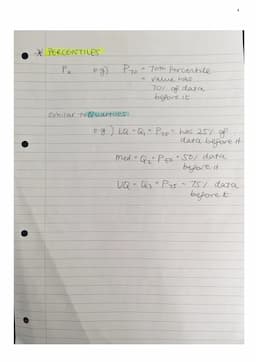 * PERCENTILES
Pₓ eg) P₇₀ = 70th Percentile
= value has
70% of data
before it
similar to QUARTILES
eg) LQ = Q₁ = P₂₅ = has 25% of
data before it
med = Q₂ = P₅₀ = 50% data
before it
UQ = Q₃ = P₇₅ = 75% data
before it